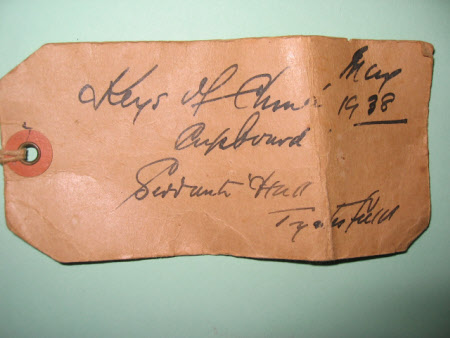 Keys of China
Cupboard
Servants' Hall
Tyntesfield
May
1938